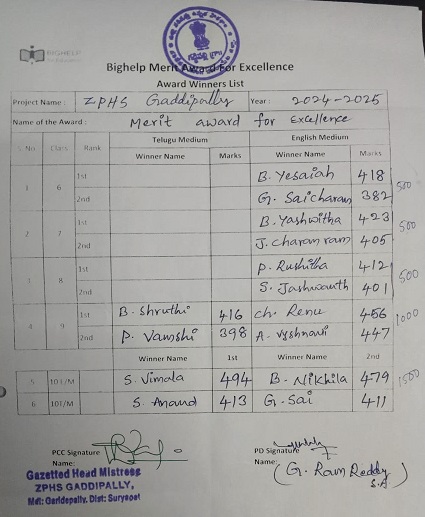 BIGHELP
Bighelp Merit Award For Excellence
Award Winners List
Project Name : ZPHS Gaddipally Year : 2024-2025
Name of the Award : Merit award for Excellence
S No Class Rank Telugu Medium English Medium
Winner Name Marks Winner Name Marks
1 6 1st B. Yesaiah 418
2nd G. Saicharan 382 500
2 7 1st B. Yashwitha 423
2nd J. charan ram 405 500
3 8 1st P. Rushitha 412
2nd S. Jashwanth 401 500
4 9 1st B. Shruthi 416 ch. Renu 456 1000
2nd P. Vamshi 398 A. Vyshnavi 447
Winner Name 1st Winner Name 2nd
5 10T/M S. Vimala 494 B. Nikhila 479 1500
6 10E/M S. Anand 413 G. Sai 411
PCC Signature PD Signature
Name: Name: (G. Ram Reddy
S.A)
Gazetted Head Mistress
ZPHS GADDIPALLY,
Mdl: Garidepally. Dist: Suryapet